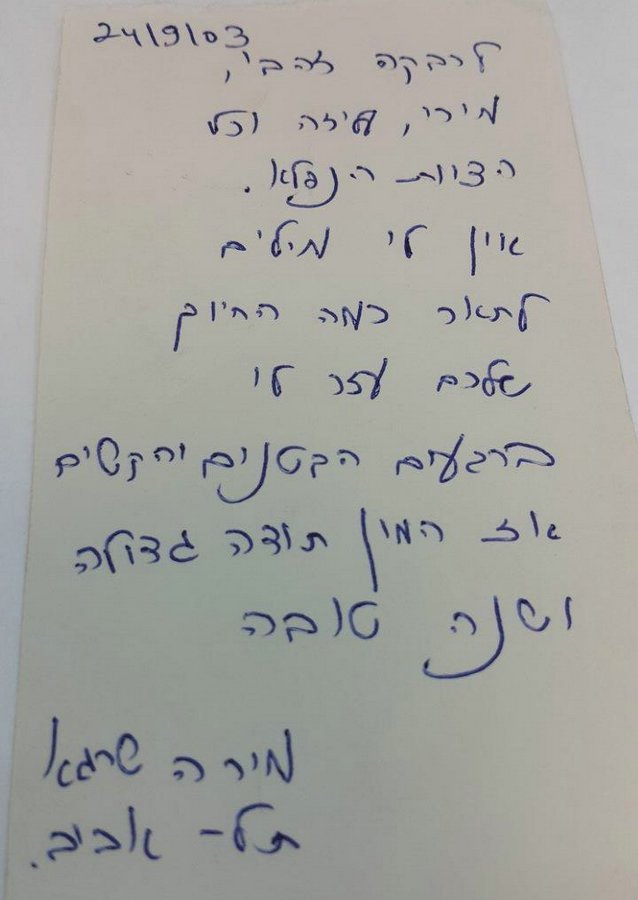 24/9/03
לרבקה זהבי,
מירי, עליזה וכל
הצוות הנפלא.
אין לי מילים
לתאר כמה החיוך
שלכם עזר לי
ברגעים הקטנים והקשים
אז המון תודה גדולה
ושנה טובה
מירה שרגא
תל-אביב.